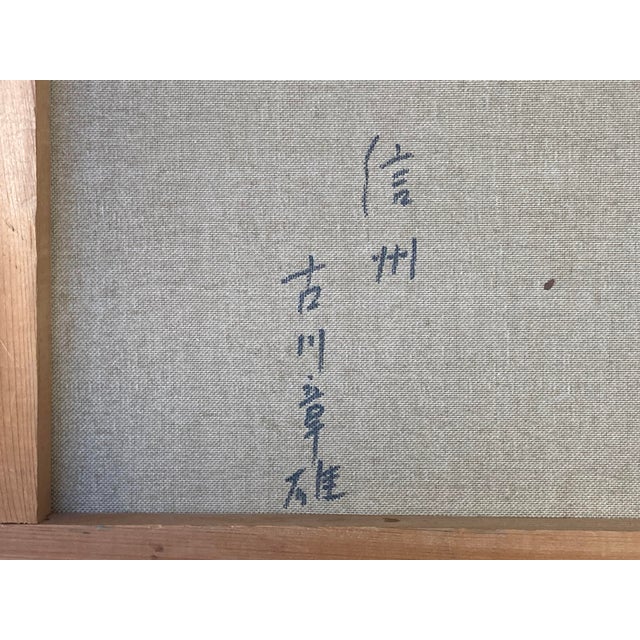 信州
古川章雄